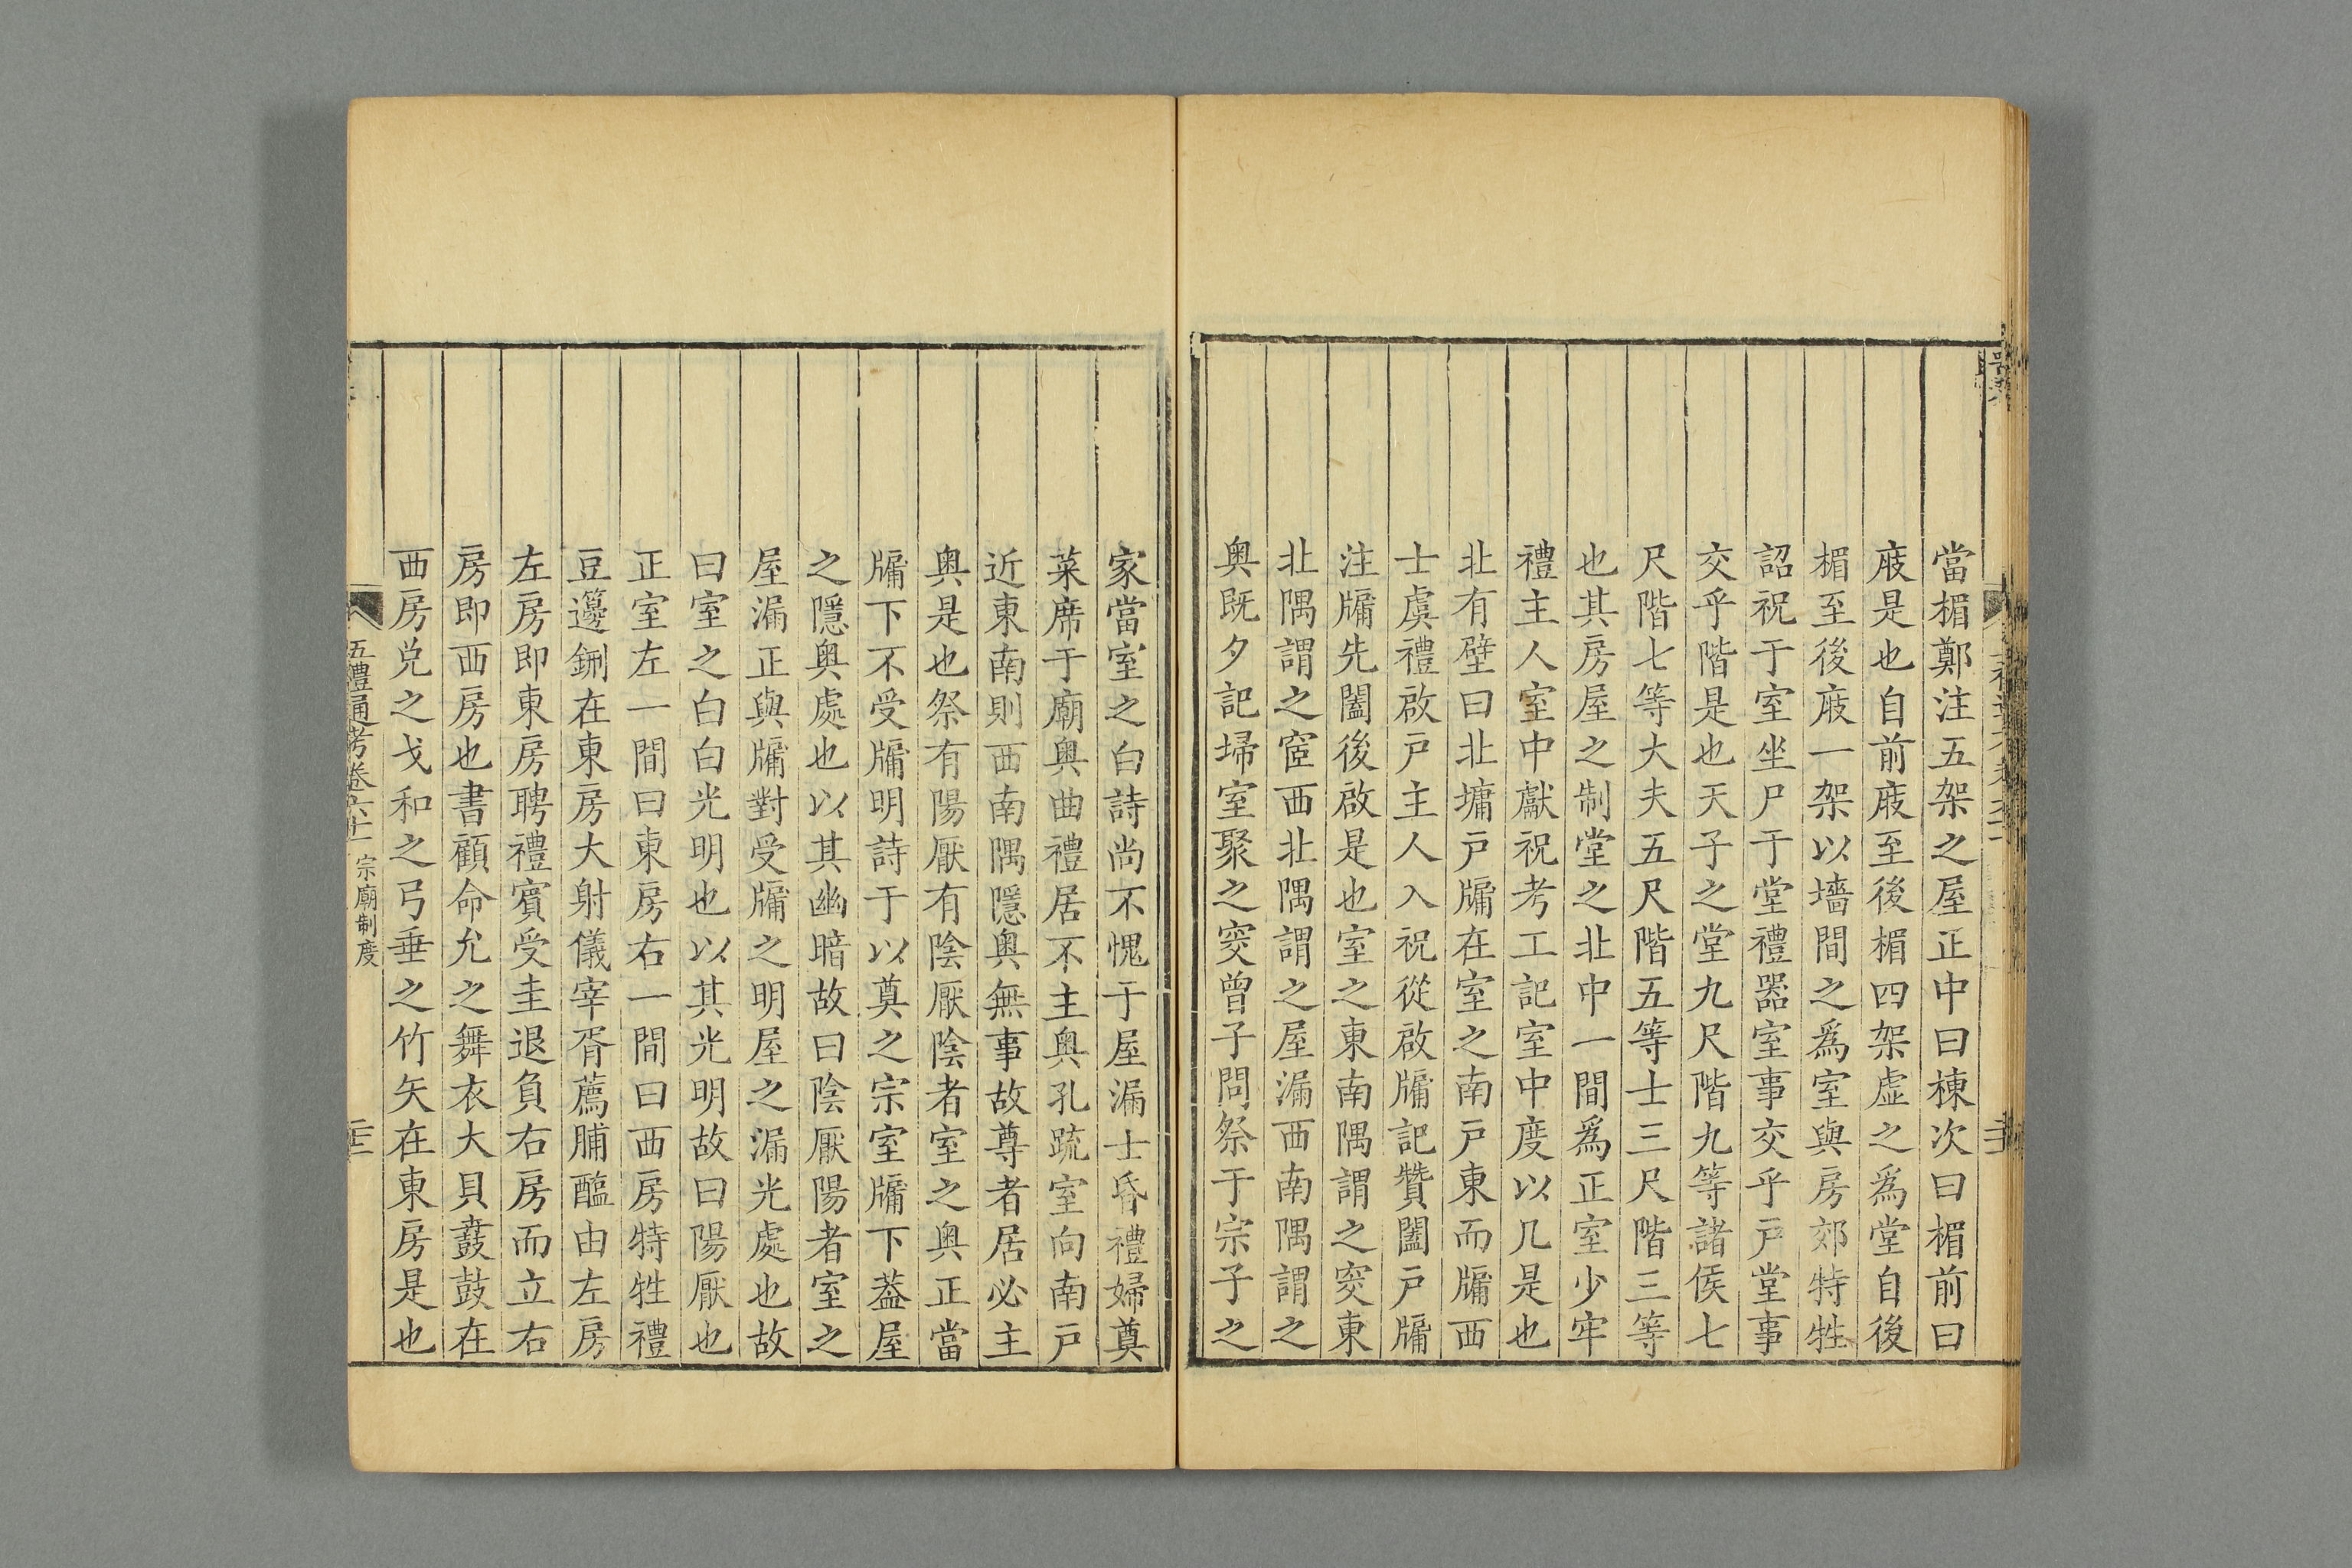 當楣鄭注五架之屋正中曰棟次曰楣前曰
庪是也自前庪至後楣四架虛之爲堂自後
楣至後庪一架以墻間之爲室與房郊特牲
詔祝于室坐尸于堂禮器室事交乎戶堂事
交乎階是也天子之堂九尺階九等諸侯七
尺階七等大夫五尺階五等士三尺階三等
也其房屋之制堂之北中一間爲正室少牢
禮主人室中獻祝考工記室中度以几是也
北有壁曰北墉戶牖在室之南戶東而牖西
士虞禮啟戶主人入祝從啟牖記贊闔戶牖
注牖先闔後啟是也室之東南隅謂之窔東
北隅謂之宧西北隅謂之屋漏西南隅謂之
奥既夕記埽室聚之窔曾子問祭于宗子之
家當室之白詩尚不愧于屋漏士昏禮婦奠
菜席于廟奥曲禮居不主奥孔疏室向南戶
近東南則西南隅隱奥無事故尊者居必主
奥是也祭有陽厭有陰厭陰者室之奥正當
牖下不受牖明詩于以奠之宗室牖下葢屋
之隱奥處也以其幽暗故曰陰厭陽者室之
屋漏正與牖對受牖之明屋之漏光處也故
曰室之白白光明也以其光明故曰陽厭也
正室左一間曰東房右一間曰西房特牲禮
豆籩鉶在東房大射儀宰胥薦脯醢由左房
左房即東房聘禮賓受圭退負右房而立右
房即西房也書顧命允之舞衣大貝鼖鼓在
西房兑之戈和之弓垂之竹矢在東房是也
五禮通考卷六十 宗廟制度